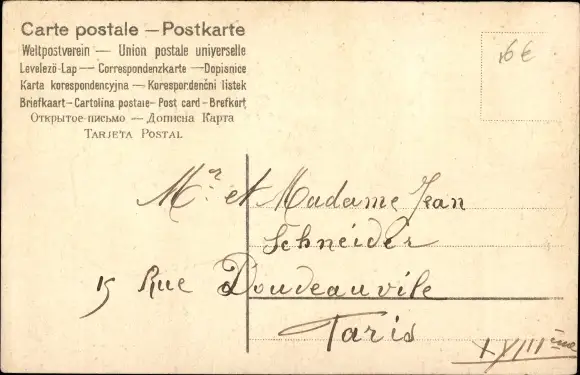 Carte postale — Postkarte
Weltpostverein — Union postale universelle
Levelező-Lap — Correspondenzkarte — Dopisnice
Karta korespondencyjna — Korespondenční listek
Briefkaart — Cartolina postale — Post card — Brefkort
Открытое письмо — Дописна Карта
Tarjeta Postal
16 €
Mr. et Madame Jean
Schneider
15 Rue Doudeauvile
Paris
XVIIIème